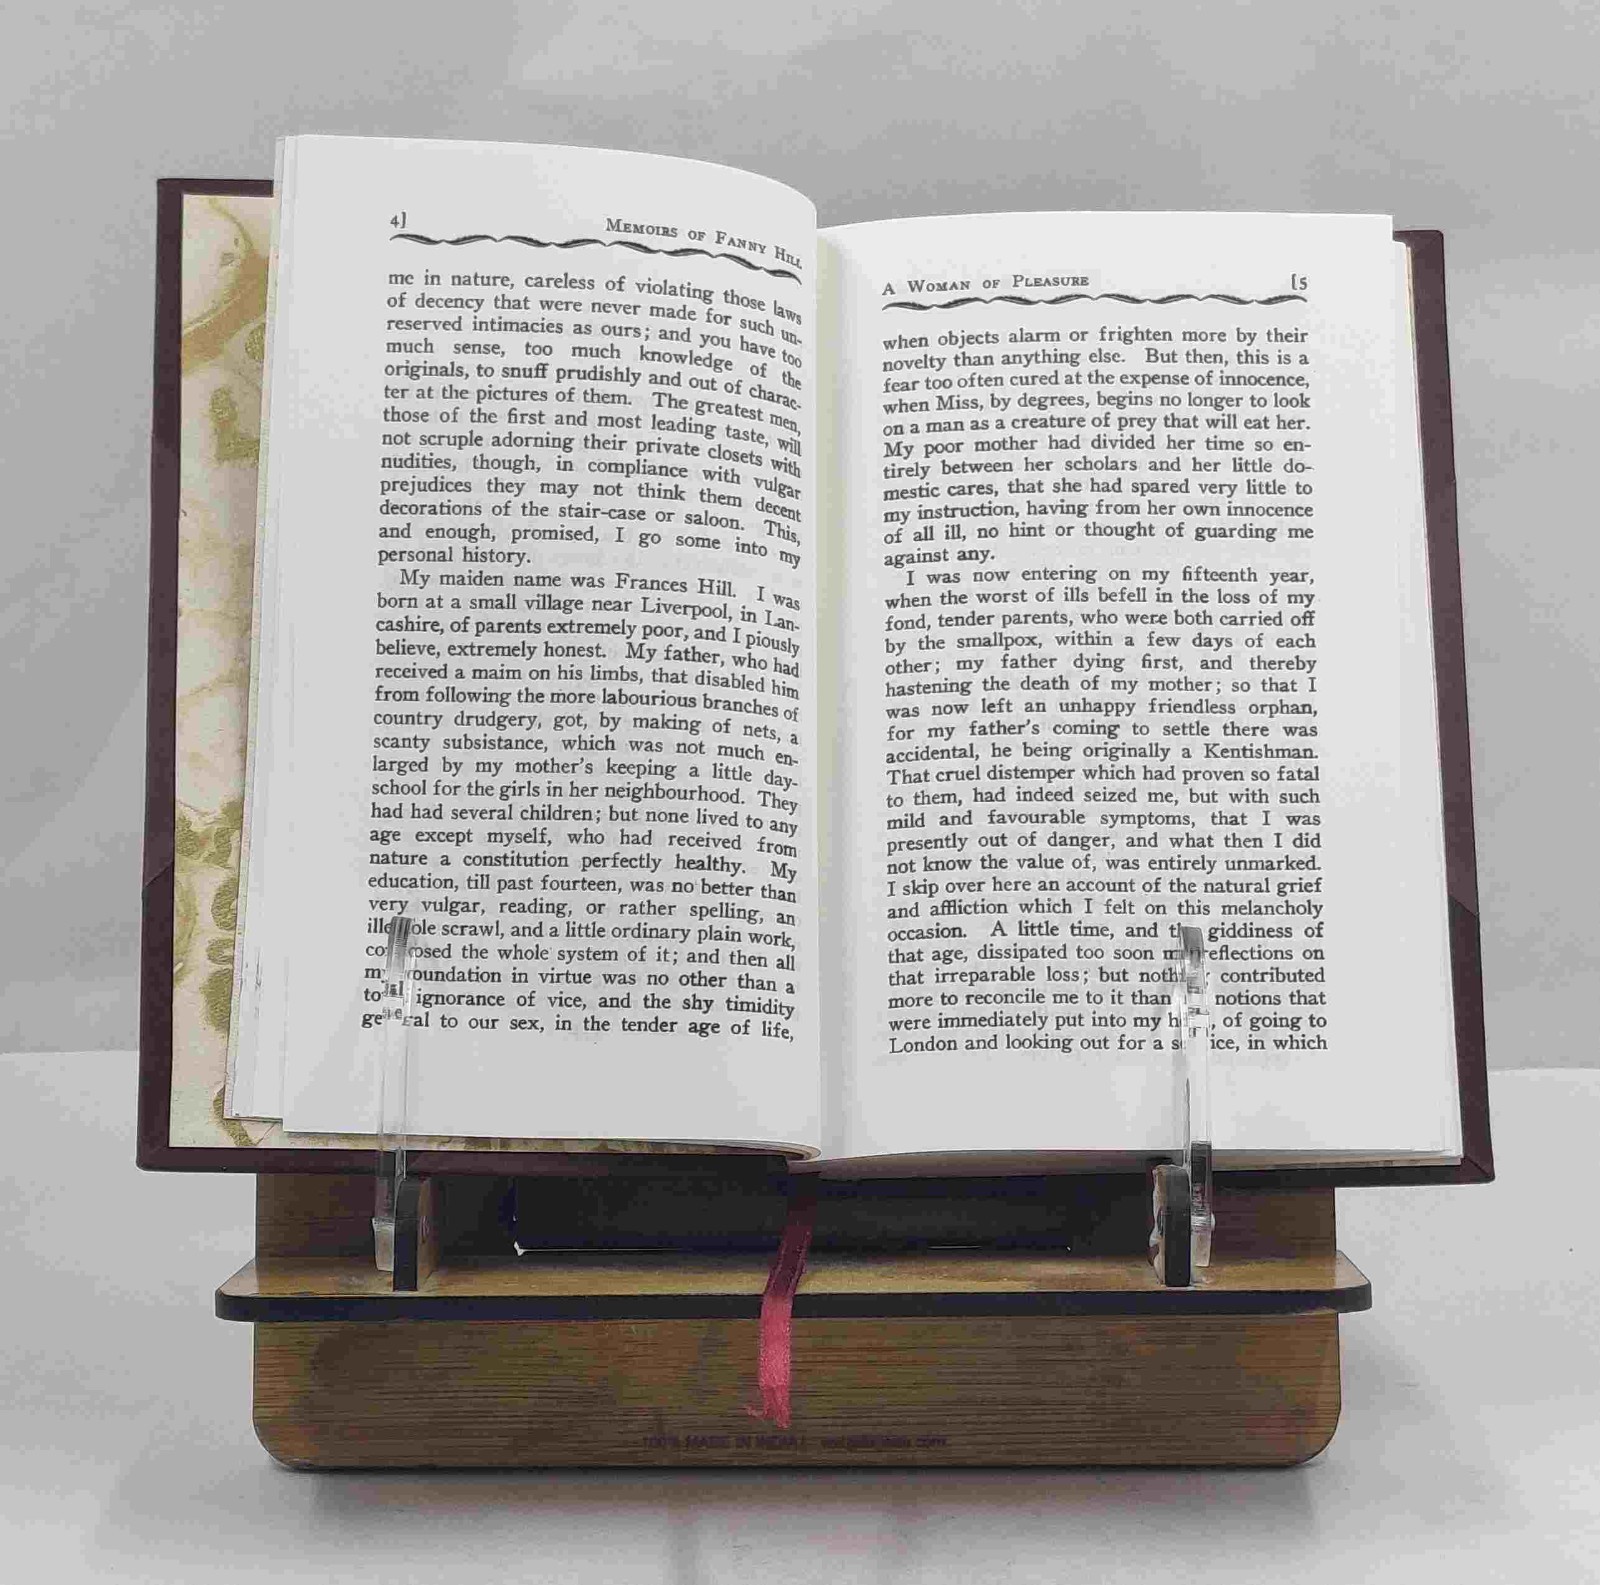 4]
MEMOIRS OF FANNY HILL
me in nature, careless of violating those laws
of decency that were never made for such un-
reserved intimacies as ours; and you have too
much sense, too much knowledge of the
originals, to snuff prudishly and out of charac-
ter at the pictures of them. The greatest men,
those of the first and most leading taste, will
not scruple adorning their private closets with
nudities, though, in compliance with vulgar
prejudices they may not think them decent
decorations of the stair-case or saloon. This,
and enough, promised, I go some into my
personal history.
My maiden name was Frances Hill. I was
born at a small village near Liverpool, in Lan-
cashire, of parents extremely poor, and I piously
believe, extremely honest. My father, who had
received a maim on his limbs, that disabled him
from following the more labourious branches of
country drudgery, got, by making of nets, a
scanty subsistance, which was not much en-
larged by my mother's keeping a little day-
school for the girls in her neighbourhood. They
had had several children; but none lived to any
age except myself, who had received from
nature a constitution perfectly healthy. My
education, till past fourteen, was no better than
very vulgar, reading, or rather spelling, an
scrawl, and a little ordinary plain work,
composed the whole system of it; and then all
my foundation in virtue was no other than a
ignorance of vice, and the shy timidity
general to our sex, in the tender age of life,
A WOMAN OF PLEASURE
[5
when objects alarm or frighten more by their
novelty than anything else. But then, this is a
fear too often cured at the expense of innocence,
when Miss, by degrees, begins no longer to look
on a man as a creature of prey that will eat her.
My poor mother had divided her time so en-
tirely between her scholars and her little do-
mestic cares, that she had spared very little to
my instruction, having from her own innocence
of all ill, no hint or thought of guarding me
against any.
I was now entering on my fifteenth year,
when the worst of ills befell in the loss of my
fond, tender parents, who were both carried off
by the smallpox, within a few days of each
other; my father dying first, and thereby
hastening the death of my mother; so that I
was now left an unhappy friendless orphan,
for my father's coming to settle there was
accidental, he being originally a Kentishman.
That cruel distemper which had proven so fatal
to them, had indeed seized me, but with such
mild and favourable symptoms, that I was
presently out of danger, and what then I did
not know the value of, was entirely unmarked.
I skip over here an account of the natural grief
and affliction which I felt on this melancholy
occasion. A little time, and the giddiness of
that age, dissipated too soon my reflections on
that irreparable loss; but nothing contributed
more to reconcile me to it than notions that
were immediately put into my of going to
London and looking out for a service, in which
100% MADE IN INDIA!